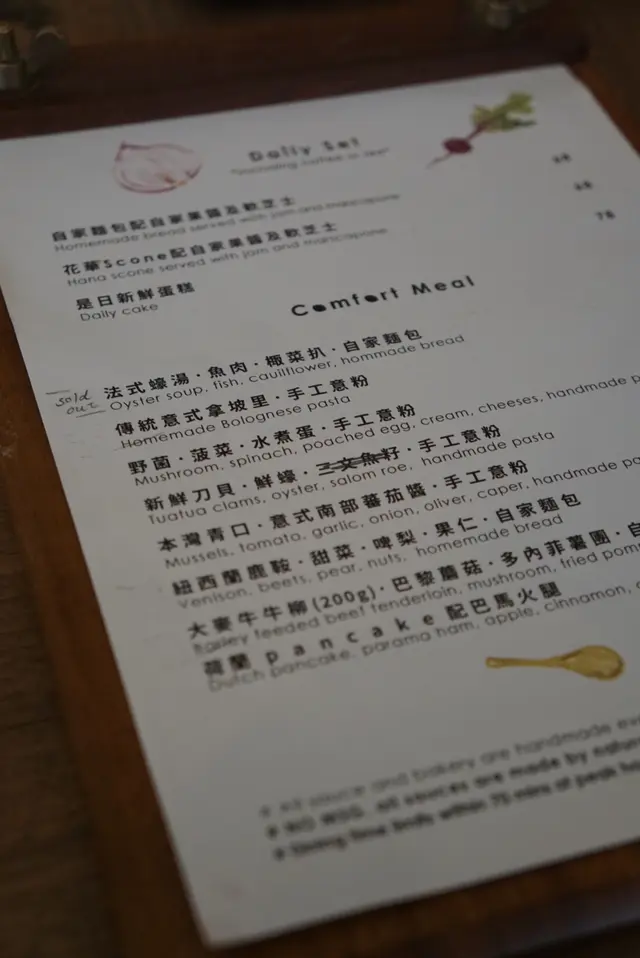 Daily Set
"including coffee or tea"
自家麵包配自家果醬及軟芝士 68
Homemade bread served with jam and mancapone
花華Scone配自家果醬及軟芝士 68
Hana scone served with jam and mancapone
是日新鮮蛋糕 78
Daily cake
Comfort Meal
sold out
法式蠔湯·魚肉·椰菜扒·自家麵包
Oyster soup, fish, cauilflower, hommade bread
傳統意式拿坡里·手工意粉
Homemade Bolognese pasta
野菌·菠菜·水煮蛋·手工意粉
Mushroom, spinach, poached egg, cream, cheeses, handmade p
新鮮刀貝·鮮蠔·三文魚籽·手工意粉
Tuatua clams, oyster, salom roe, handmade pasta
本灣青口·意式南部蕃茄醬·手工意粉
Mussels, tomato, garlic, onion, oliver, caper, handmade pa
紐西蘭鹿鞍·甜菜·啤梨·果仁·自家麵包
Venison, beets, pear, nuts, homemade bread
大麥牛牛柳(200g)·巴黎蘑菇·多內菲薯團·自
Barley feeded beef tenderloin, mushroom, fried pom
荷蘭 pancake 配巴馬火腿
Dutch pancake, parama ham, apple, cinnamon,
# All sauce and bakery are handmade eve
# NO MSG, all sauces are made by natur
# Dining time limits within 75 mins at peak ho